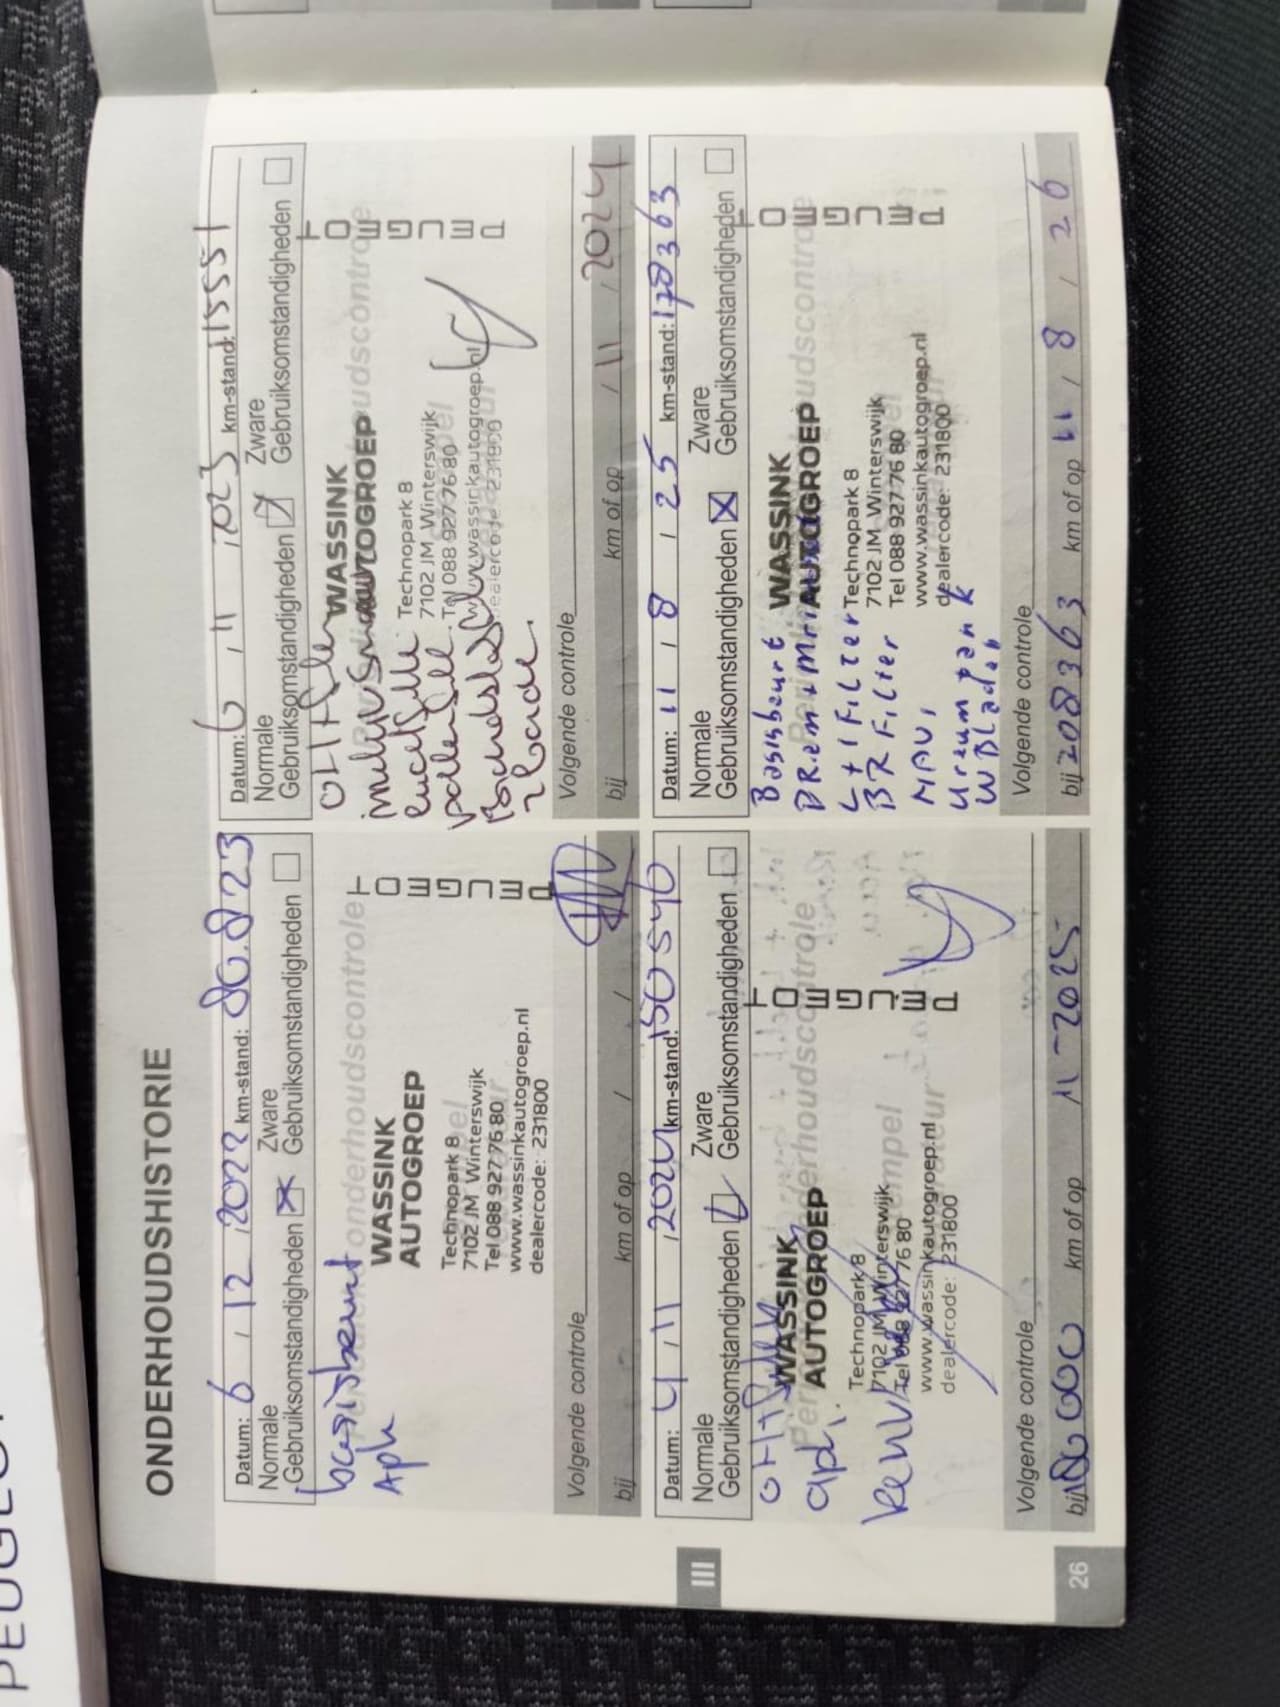 ONDERHOUDSHISTORIE
Datum: 6 / 12 / 2022 km-stand: 80.823
Normale
Gebruiksomstandigheden
Zware
Gebruiksomstandigheden
basisbeurt
Apk
WASSINK
AUTOGROEP
Technopark 8
7102 JM Winterswijk
Tel 088 927 76 80
www.wassinkautogroep.nl
dealercode: 231800
PEUGEOT
Volgende controle
bij km of op / /
Datum: 6 / 11 / 023 km-stand:
Normale
Gebruiksomstandigheden
Zware
Gebruiksomstandigheden
olie + filter
WASSINK
AUTOGROEP
Technopark 8
7102 JM Winterswijk
Tel 088 927 76 80
www.wassinkautogroep.nl
dealercode: 231800
PEUGEOT
Volgende controle
bij km of op / 11 / 2024
III
Datum: 4 / 11 / 2024 km-stand: 150546
Normale
Gebruiksomstandigheden
Zware
Gebruiksomstandigheden
apk.
WASSINK
AUTOGROEP
Technopark 8
7102 JM Winterswijk
Tel 088 927 76 80
www.wassinkautogroep.nl
dealercode: 231800
PEUGEOT
Volgende controle
bij 180000 km of op 11-2025
Datum: 11 / 8 / 25 km-stand: 178363
Normale
Gebruiksomstandigheden
Zware
Gebruiksomstandigheden
Basisbeurt
L+I Filter
BR Filter
NAVI
Ureum tank
W Bladen
WASSINK
AUTOGROEP
Technopark 8
7102 JM Winterswijk
Tel 088 927 76 80
www.wassinkautogroep.nl
dealercode: 231800
PEUGEOT
Volgende controle
bij 208363 km of op 11 / 8 / 26
26